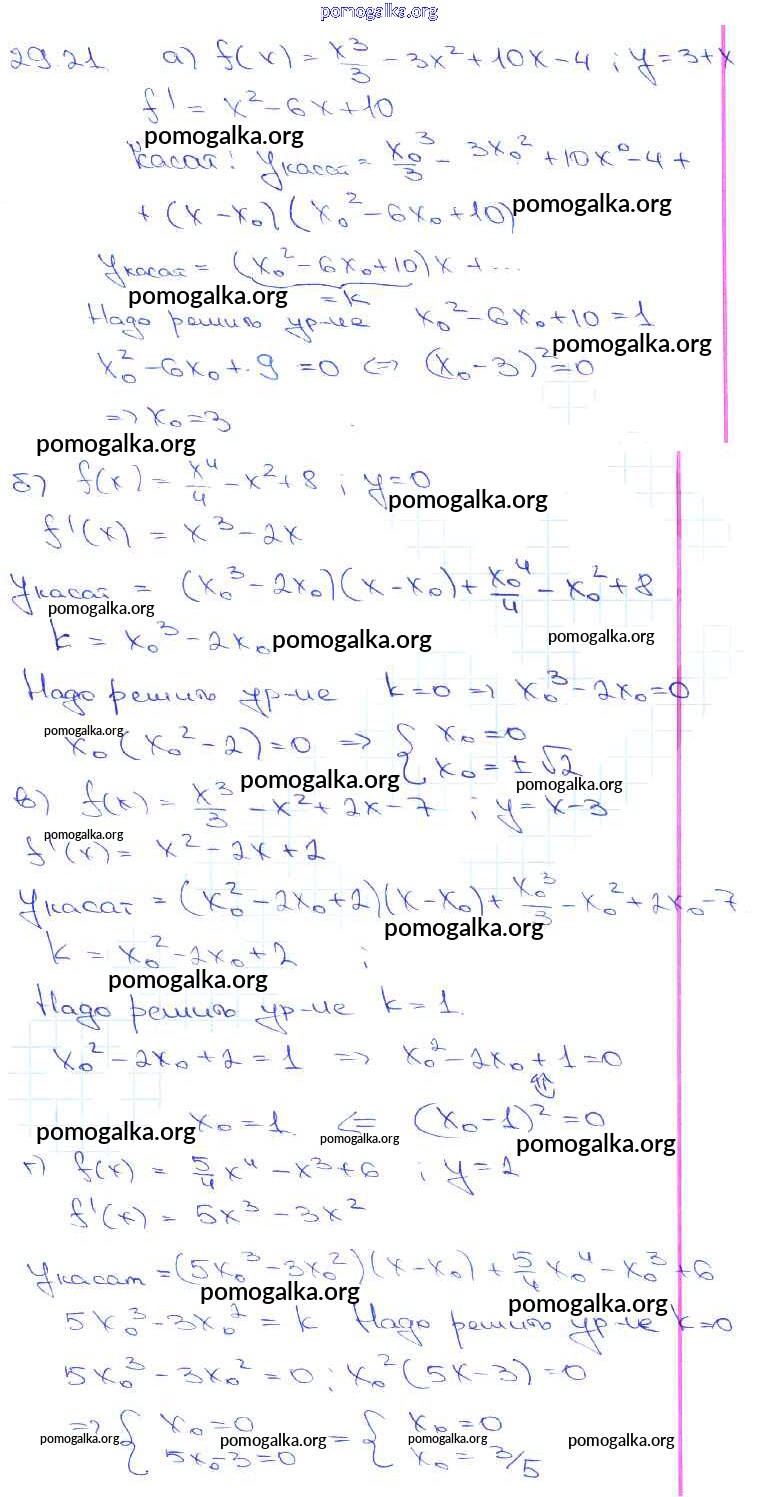 pomogalka.org
29.21. а) f(x) = x³/3 - 3x² + 10x - 4 ; y = 3 + x
f' = x² - 6x + 10
pomogalka.org
Касат: yкасат = x₀³/3 - 3x₀² + 10x⁰ - 4 +
+ (x - x₀)(x₀² - 6x₀ + 10) pomogalka.org
yкасат = (x₀² - 6x₀ + 10)x + ...
pomogalka.org = k
Надо решить ур-ие x₀² - 6x₀ + 10 = 1
pomogalka.org
x₀² - 6x₀ + 9 = 0 <=> (x₀ - 3)² = 0
=> x₀ = 3
pomogalka.org
б) f(x) = x⁴/4 - x² + 8 ; y = 0
pomogalka.org
f'(x) = x³ - 2x
yкасат = (x₀³ - 2x₀)(x - x₀) + x₀⁴/4 - x₀² + 8
pomogalka.org
k = x₀³ - 2x₀ pomogalka.org pomogalka.org
Надо решить ур-ие k = 0 => x₀³ - 2x₀ = 0
pomogalka.org
x₀(x₀² - 2) = 0 => { x₀ = 0
x₀ = ±√2
pomogalka.org pomogalka.org
в) f(x) = x³/3 - x² + 2x - 7 ; y = x - 3
pomogalka.org
f'(x) = x² - 2x + 2
yкасат = (x₀² - 2x₀ + 2)(x - x₀) + x₀³/3 - x₀² + 2x₀ - 7
pomogalka.org
k = x₀² - 2x₀ + 2 ;
pomogalka.org
Надо решить ур-ие k = 1.
x₀² - 2x₀ + 2 = 1 => x₀² - 2x₀ + 1 = 0
x₀ = 1 <= (x₀ - 1)² = 0
pomogalka.org pomogalka.org pomogalka.org
г) f(x) = 5/4 x⁴ - x³ + 6 ; y = 2
f'(x) = 5x³ - 3x²
yкасат = (5x₀³ - 3x₀²)(x - x₀) + 5/4 x₀⁴ - x₀³ + 6
pomogalka.org pomogalka.org
5x₀³ - 3x₀² = k Надо решить ур-ие k = 0
5x₀³ - 3x₀² = 0 ; x₀²(5x - 3) = 0
=> { x₀ = 0 = { x₀ = 0
pomogalka.org pomogalka.org pomogalka.org pomogalka.org
5x₀ - 3 = 0 x₀ = 3/5